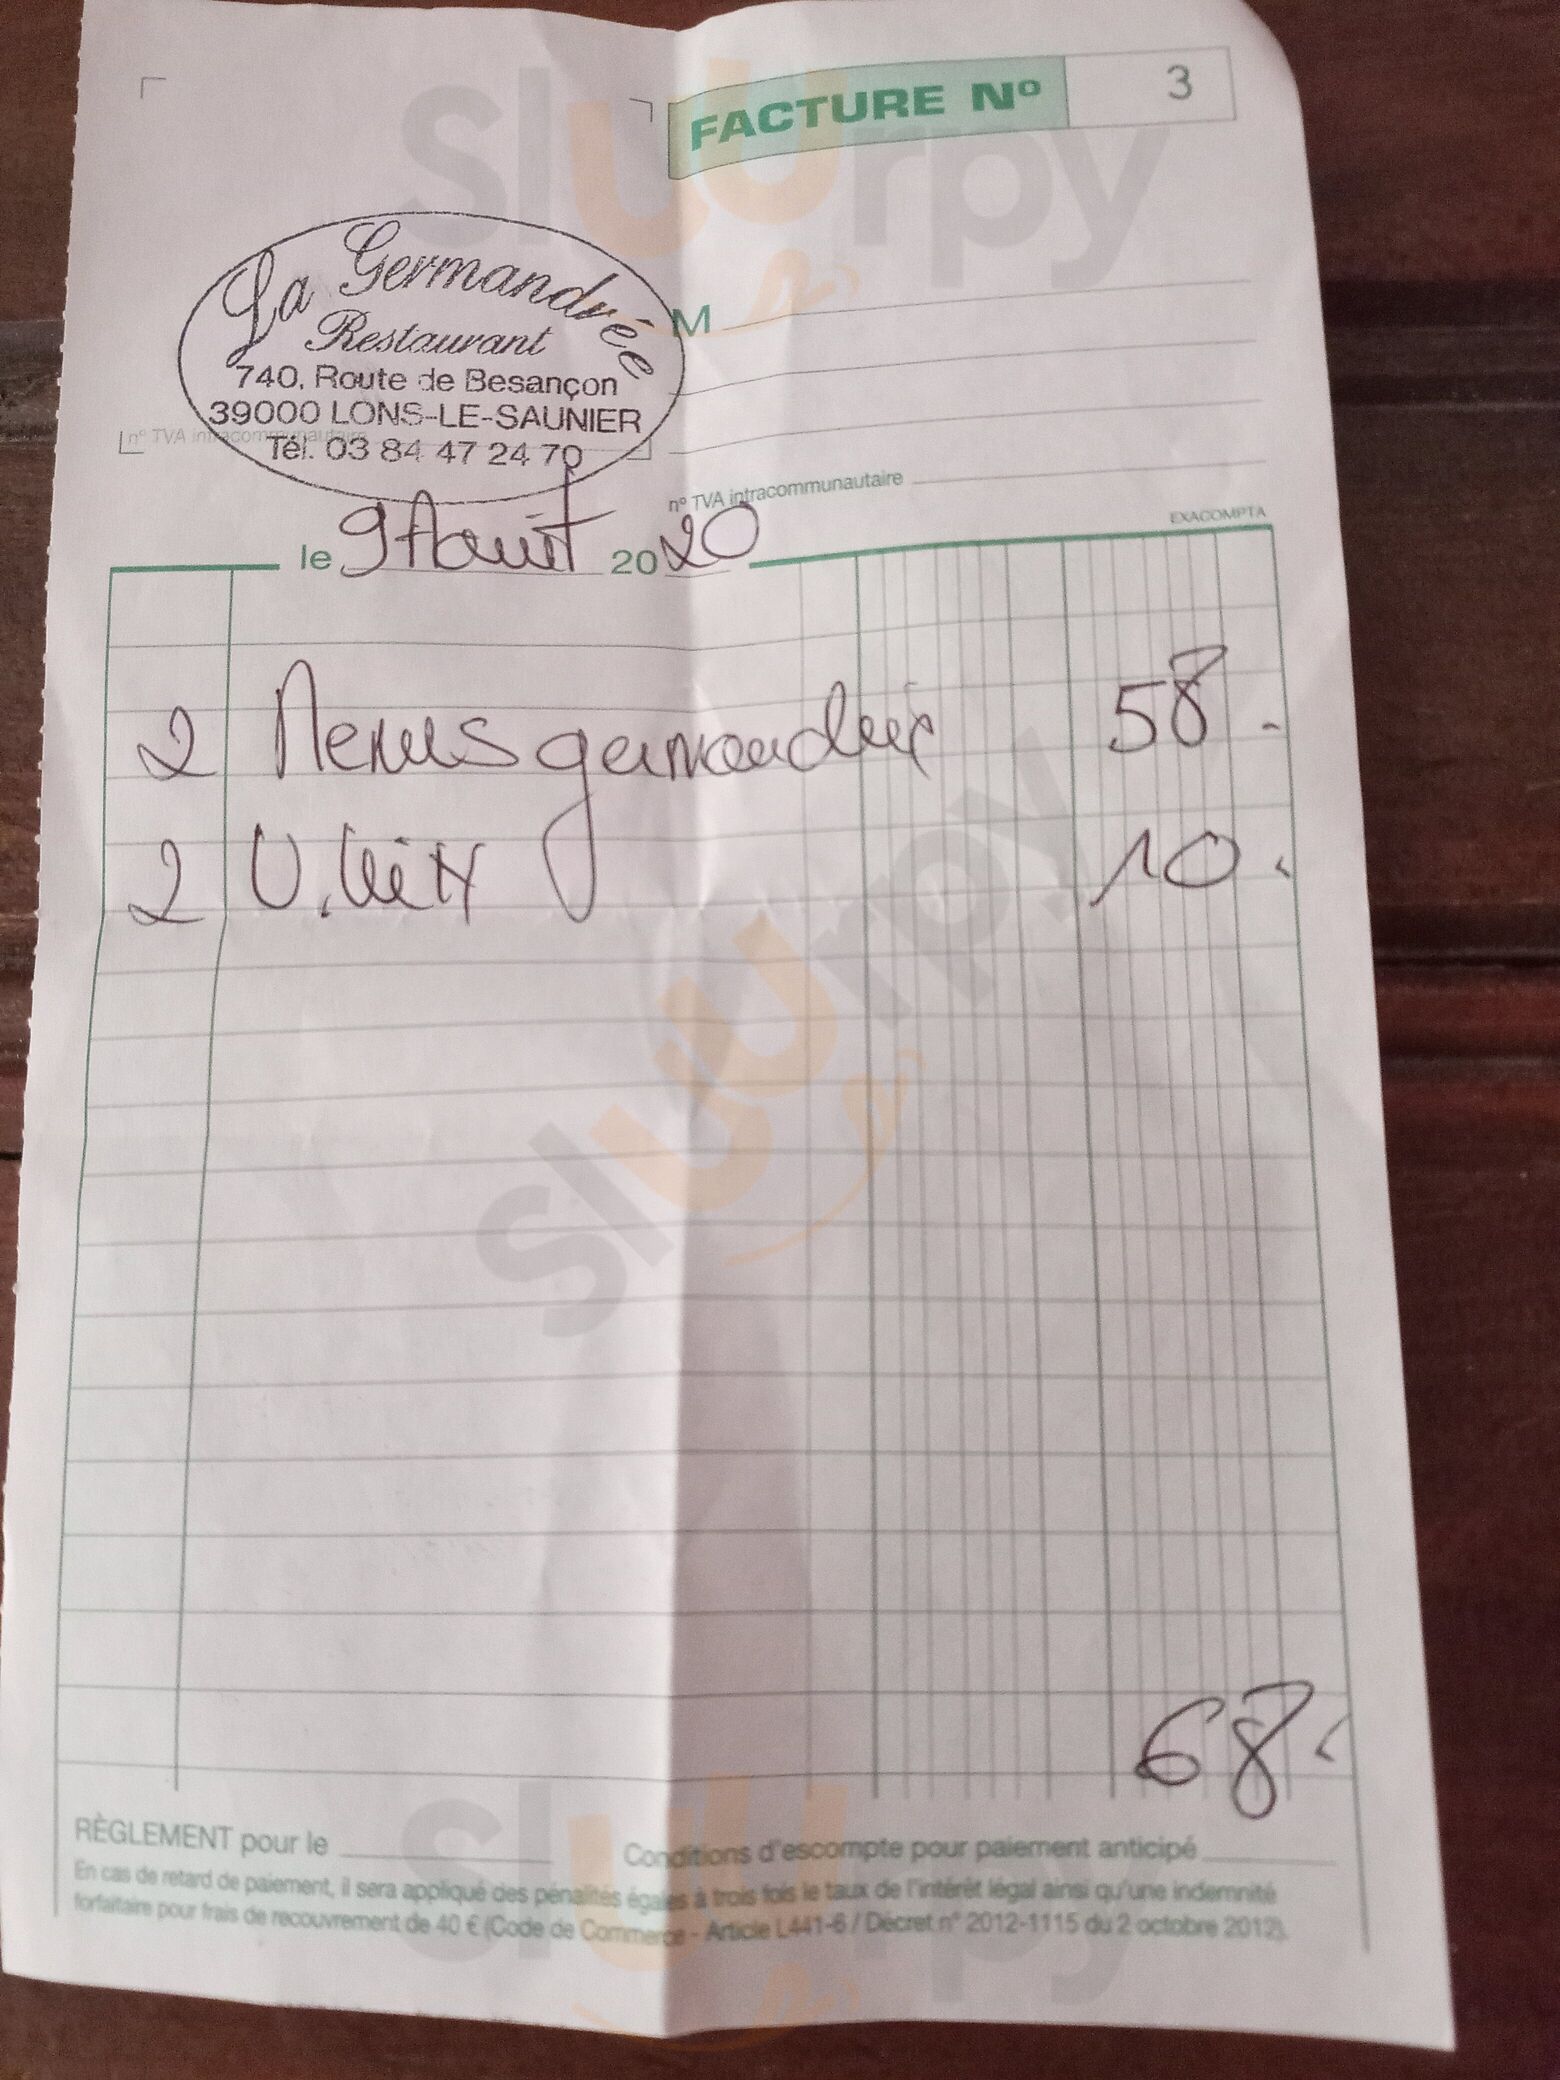 FACTURE Nº 3
La Germandrée
Restaurant
740, Route de Besançon
39000 LONS-LE-SAUNIER
Tél. 03 84 47 24 70
nº TVA intracommunautaire
M
nº TVA intracommunautaire
EXACOMPTA
le 9 Août 2020
2 Menus 58.-
2 10.
68.
RÈGLEMENT pour le
Conditions d'escompte pour paiement anticipé
En cas de retard de paiement, il sera appliqué des pénalités égales à trois fois le taux de l'intérêt légal ainsi qu'une indemnité
forfaitaire pour frais de recouvrement de 40 € (Code de Commerce - Article L441-6 / Décret n° 2012-1115 du 2 octobre 2012).
sluurpy
sluurpy
sluurpy